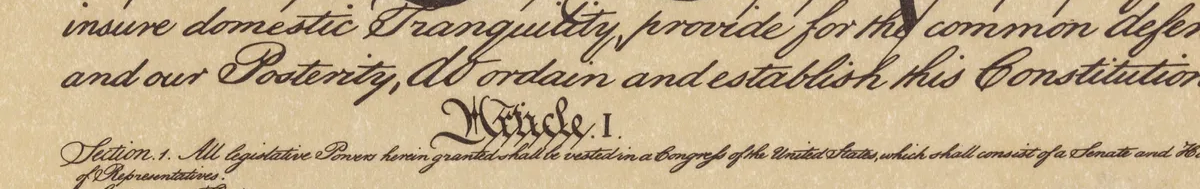 insure domestic Tranquility, provide for the common defen
and our Posterity, do ordain and establish this Constitution
Article. I.
Section. 1. All legislative Powers herein granted shall be vested in a Congress of the United States, which shall consist of a Senate and H
of Representatives.